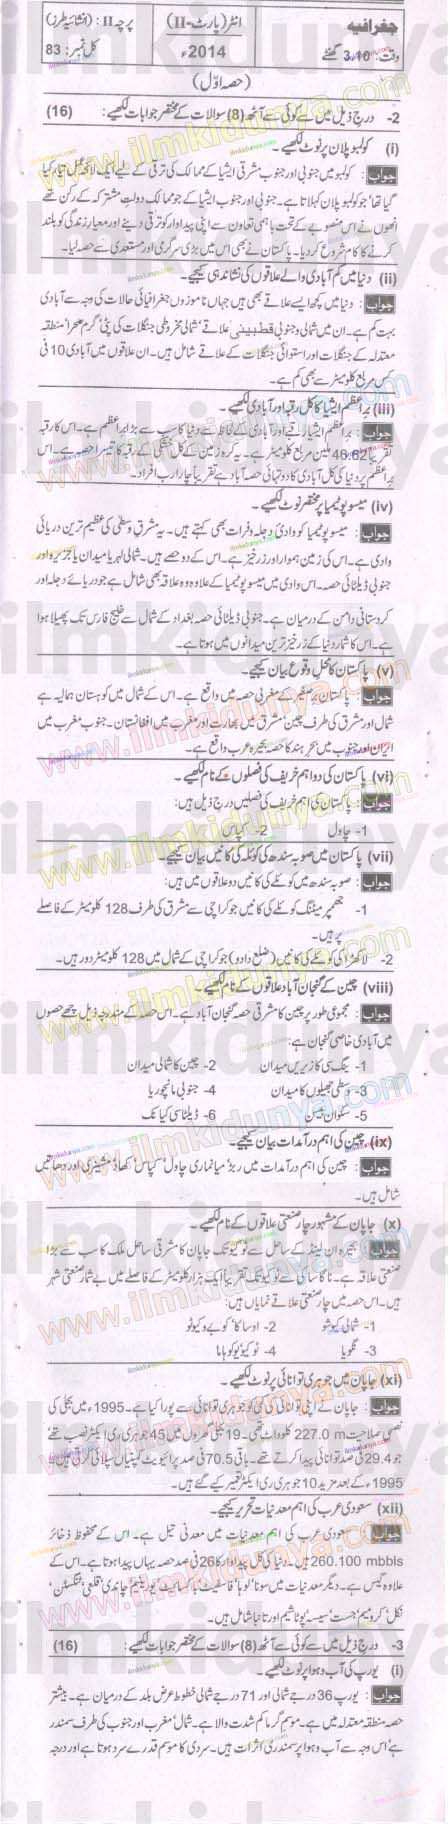 جغرافیہ
انٹر (پارٹ-II)
پرچہ II: (انشائیہ طرز)
وقت: 3.10 گھنٹے
2014ء
کل نمبر: 83
(حصہ اوّل)
2- درج ذیل میں سے کوئی سے آٹھ (8) سوالات کے مختصر جوابات لکھیے: (16)
(i) کولمبو پلان پر نوٹ لکھیے۔
جواب: کولمبو میں جنوبی اور جنوب مشرقی ایشیا کے ممالک کی ترقی کے لیے ایک لائحہ عمل تیار کیا
گیا تھا جو کولمبو پلان کہلاتا ہے۔ جنوبی اور جنوبی ایشیا کے جو ممالک دولتِ مشترکہ کے رکن تھے
انھوں نے اس منصوبے کے تحت باہمی تعاون سے اپنی پیداوار کو ترقی دینے اور معیارِ زندگی کو بلند
کرنے کا کام شروع کر دیا۔ پاکستان نے بھی اس میں بڑی سرگرمی اور مستعدی سے حصہ لیا۔
(ii) دنیا میں کم آبادی والے علاقوں کی نشاندہی کیجیے۔
جواب: دنیا میں کچھ ایسے علاقے بھی ہیں جہاں ناموزوں جغرافیائی حالات کی وجہ سے آبادی
بہت کم ہے۔ ان میں شمالی و جنوبی قطبینی علاقے، شمالی مخروطی جنگلات کی پٹی، گرم صحرا، منطقہ
معتدلہ کے جنگلات اور استوائی جنگلات کے علاقے شامل ہیں۔ ان علاقوں میں آبادی 10 فی
کس مربع کلومیٹر سے بھی کم ہے۔
(iii) براعظم ایشیا کا کل رقبہ اور آبادی لکھیے۔
جواب: براعظم ایشیا رقبے اور آبادی کے لحاظ سے دنیا کا سب سے بڑا براعظم ہے۔ اس کا رقبہ
تقریباً 46.82 ملین مربع کلومیٹر ہے۔ یہ کرہ زمین کے کل خشکی کے رقبہ کا تیسرا حصہ ہے۔ اس
براعظم پر دنیا کی کل آبادی کا دو تہائی حصہ آباد ہے تقریباً چار ارب افراد۔
(iv) میسوپوٹیمیا پر مختصر نوٹ لکھیے۔
جواب: میسوپوٹیمیا کو وادیٔ دجلہ و فرات بھی کہتے ہیں۔ یہ مشرقِ وسطیٰ کی عظیم ترین دریائی
وادی ہے۔ اس کی زمین ہموار اور زرخیز ہے۔ اس کے دو حصے ہیں۔ شمالی لہریا میدان یا الجزیرہ اور
جنوبی ڈیلٹائی حصہ۔ اس وادی میں میسوپوٹیمیا کے علاوہ وہ علاقہ بھی شامل ہے جو دریائے دجلہ اور
کردستانی دامن کے درمیان ہے۔ جنوبی ڈیلٹائی حصہ بغداد کے شمال سے خلیج فارس تک پھیلا ہوا
ہے۔ اس کا شمار دنیا کے زرخیز ترین میدانوں میں ہوتا ہے۔
(v) پاکستان کا محلِ وقوع بیان کیجیے۔
جواب: پاکستان برصغیر کے مغربی حصہ میں واقع ہے۔ اس کے شمال میں کوہستان ہمالیہ ہے
شمال اور مشرق کی طرف چین، مشرق میں بھارت اور مغرب میں افغانستان۔ جنوب مغرب میں
ایران اور جنوب میں بحرِ ہند کا حصہ بحیرہ عرب واقع ہے۔
(vi) پاکستان کی دو اہم خریف کی فصلوں کے نام لکھیے۔
جواب: پاکستان کی اہم خریف کی فصلیں درج ذیل ہیں:
1- چاول 2- کپاس
(vii) پاکستان میں صوبہ سندھ کی کوئلہ کی کانیں بیان کیجیے۔
جواب: صوبہ سندھ میں کوئلے کی کانیں دو علاقوں میں ہیں:
1- جھمپر میٹنگ کوئلے کی کانیں جو کراچی سے مشرق کی طرف 128 کلومیٹر کے فاصلے
پر ہیں۔
2- لاکھڑا کوئلے کی کانیں (ضلع دادو) جو کراچی کے شمال میں 128 کلومیٹر دور ہیں۔
(viii) چین کے گنجان آباد علاقوں کے نام لکھیے۔
جواب: مجموعی طور پر چین کا مشرقی حصہ گنجان آباد ہے۔ اس حصہ کے مندرجہ ذیل چھے حصوں
میں آبادی خاصی گنجان ہے:
1- ینگ سی کا زیریں میدان 2- چین کا شمالی میدان
3- وسطی جھیلوں کا میدان 4- جنوبی مانچوریا
5- سکوان بیسن 6- ڈیلٹا سی کیانگ
(ix) چین کی اہم درآمدات بیان کیجیے۔
جواب: چین کی اہم درآمدات میں ربڑ، میانماری چاول، کپاس، کھاد، مشینری اور دھاتیں
شامل ہیں۔
(x) جاپان کے مشہور چار صنعتی علاقوں کے نام لکھیے۔
جواب: بحیرہ ان لینڈ کے ساحل سے ٹوکیو تک جاپان کا مشرقی ساحل ملک کا سب سے بڑا
صنعتی علاقہ ہے۔ ناگاساکی سے ٹوکیو تک تقریباً ایک ہزار کلومیٹر کے فاصلے میں بے شمار صنعتی شہر
ہیں۔ اس حصہ میں چار صنعتی علاقے نمایاں ہیں:
1- شمالی کیوشو 2- اوساکا، کوبے و کیوٹو
3- نگویا 4- ٹوکیو یوکوہاما
(xi) جاپان میں جوہری توانائی پر نوٹ لکھیے۔
جواب: جاپان نے اپنی توانائی کی کمی کو جوہری توانائی سے پورا کیا ہے۔ 1995ء میں بجلی کی
نصبی صلاحیت 227.0 m کلوواٹ تھی۔ 19 بجلی گھروں میں 45 جوہری ری ایکٹر نصب تھے
جو 29.4 فی صد توانائی پیدا کرتے تھے۔ باقی 70.5 فی صد پرائیویٹ کمپنیاں سپلائی کرتی ہیں۔
1995ء کے بعد مزید 10 جوہری ری ایکٹر تعمیر کیے گئے ہیں۔
(xii) سعودی عرب کی اہم معدنیات تحریر کیجیے۔
جواب: سعودی عرب کی اہم معدنیات میں معدنی تیل ہے۔ اس کے محفوظ ذخائر
260.100 mbbls ہیں۔ دنیا کی کل پیداوار کا 26 فی صد حصہ یہاں پیدا ہوتا ہے۔ اس کے
علاوہ گیس ہے۔ دیگر معدنیات میں سونا، لوہا، فاسفیٹ، باکسائیٹ، یورینیم، چاندی، قلعی، ٹنگسٹن،
نکل، کرومیم، جست، سیسہ، پوٹاشیم اور تانبا شامل ہیں۔
3- درج ذیل میں سے کوئی سے آٹھ (8) سوالات کے مختصر جوابات لکھیے: (16)
(i) یورپ کی آب و ہوا پر نوٹ لکھیے۔
جواب: یورپ 36 درجے شمالی اور 71 درجے شمالی خطوط عرض بلد کے درمیان ہے۔ بیشتر
حصہ منطقہ معتدلہ میں ہے۔ موسمِ گرما کم شدت والا ہے۔ شمال، مغرب اور جنوب کی طرف سمندر
ہے، اس وجہ سے آب و ہوا پر سمندری اثرات ہیں۔ سردی کا موسم قدرے سرد ہوتا ہے اور درجہ
www.ilmkidunya.com